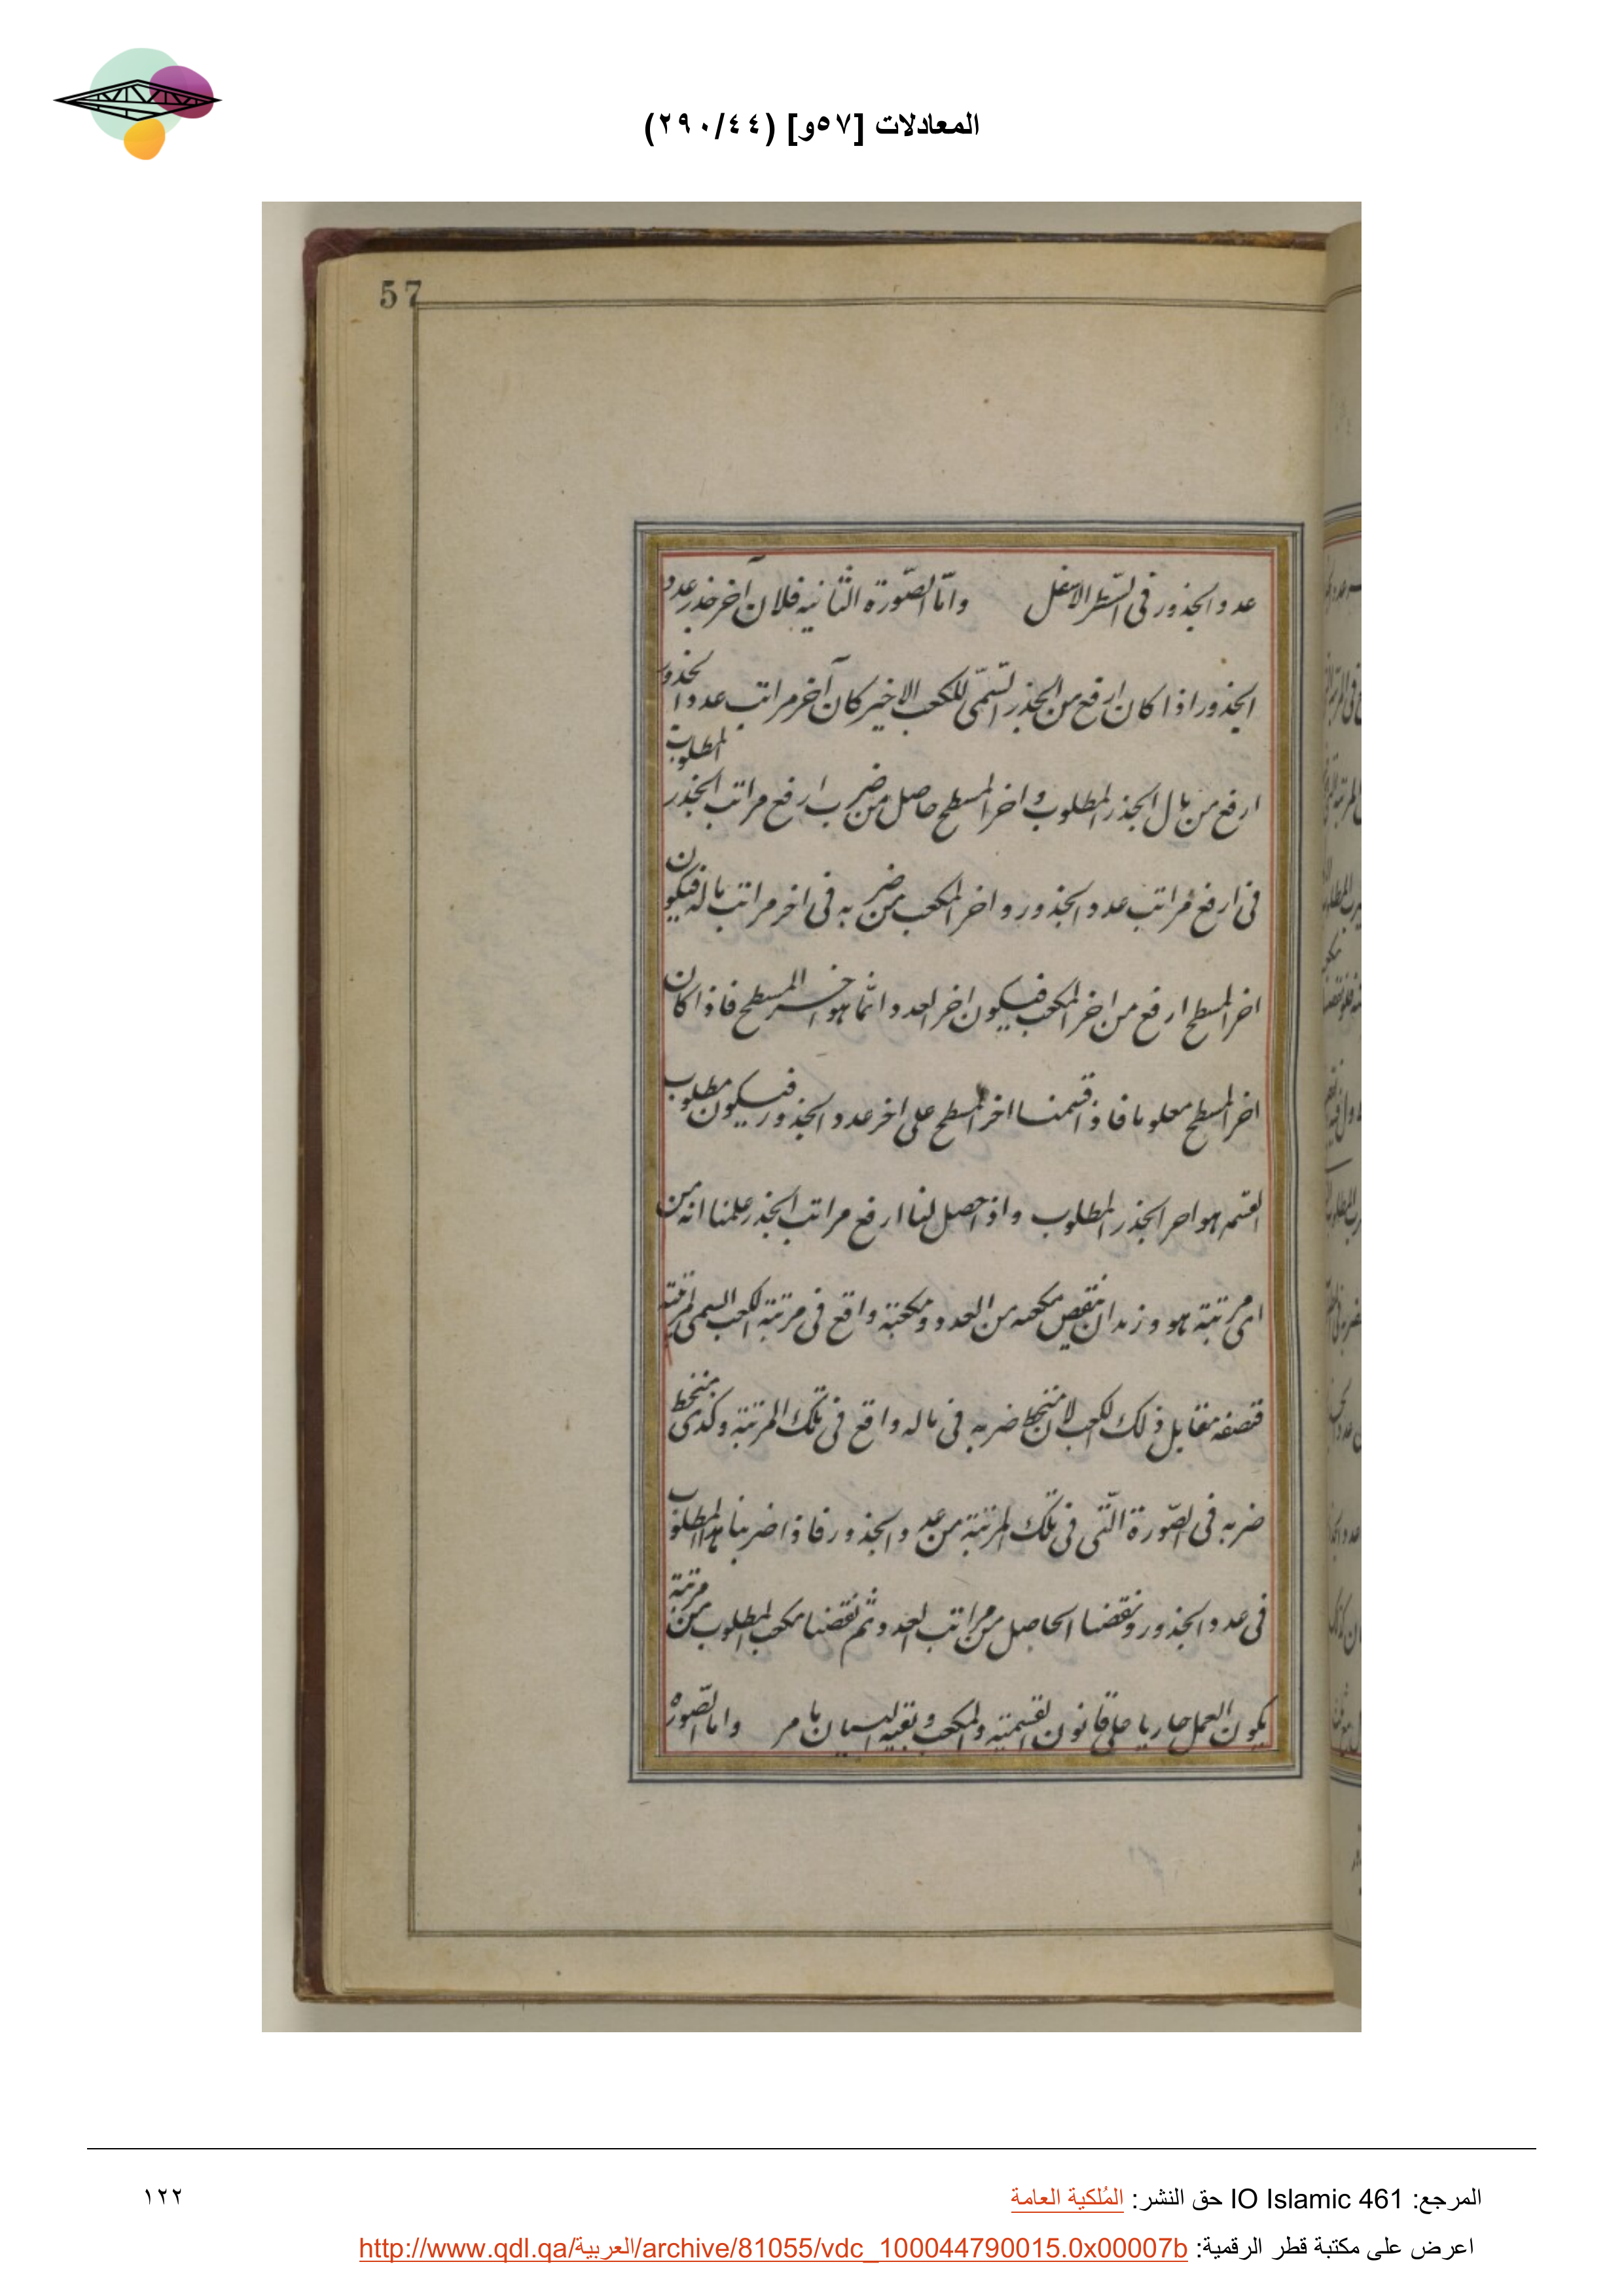 المعادلات [٥٧و] (٢٩٠/٤٤)
57
عدد الجذور فى السّطر الاسفل وامّا الصّورة الثّانيه فلان آخر جذر عدد
الجذور اذا كان ارفع من الجذر السّمّى للكعب الاخير كان آخر مراتب عدد الجذور
ارفع من مال الجذر المطلوب واخر المسطح حاصل من ضرب ارفع مراتب الجذر المطلوب
فى ارفع مراتب عدد الجذور واخر المكعب من ضربه فى اخر مراتب ماله فيكون
اخر المسطح ارفع من اخر المكعب فيكون اخر العدد انّما هو اخر المسطح فاذا كان
اخر المسطح معلوما فاذا قسمنا اخر المسطح على اخر عدد الجذور فيكون مطلوب
القسمه هو اخر الجذر المطلوب واذا حصل لنا ارفع مراتب الجذر علمنا انه من
اى مرتبة هو ونريد ان ننقص مكعبه من العدد ومكعبه واقع فى مرتبة الكعب السمى لمرتبته
فنضعه مقابل ذلك الكعب لان منحط ضربه فى ماله واقع فى تلك المرتبة وكذى منحط
ضربه فى الصّورة الّتى فى تلك المرتبة من عدد الجذور فاذا ضربنا هذا المطلوب
فى عدد الجذور ونقصنا الحاصل من مراتب العدد ثم نقصنا مكعب المطلوب من مرتبة
يكون العمل جاريا على قانون القسمة والمكعب وبقيه البيان ما مر واما الصّوره
المرجع: IO Islamic 461 حق النشر: المُلكية العامة
١٢٢
اعرض على مكتبة قطر الرقمية: http://www.qdl.qa/العربية/archive/81055/vdc_100044790015.0x00007b